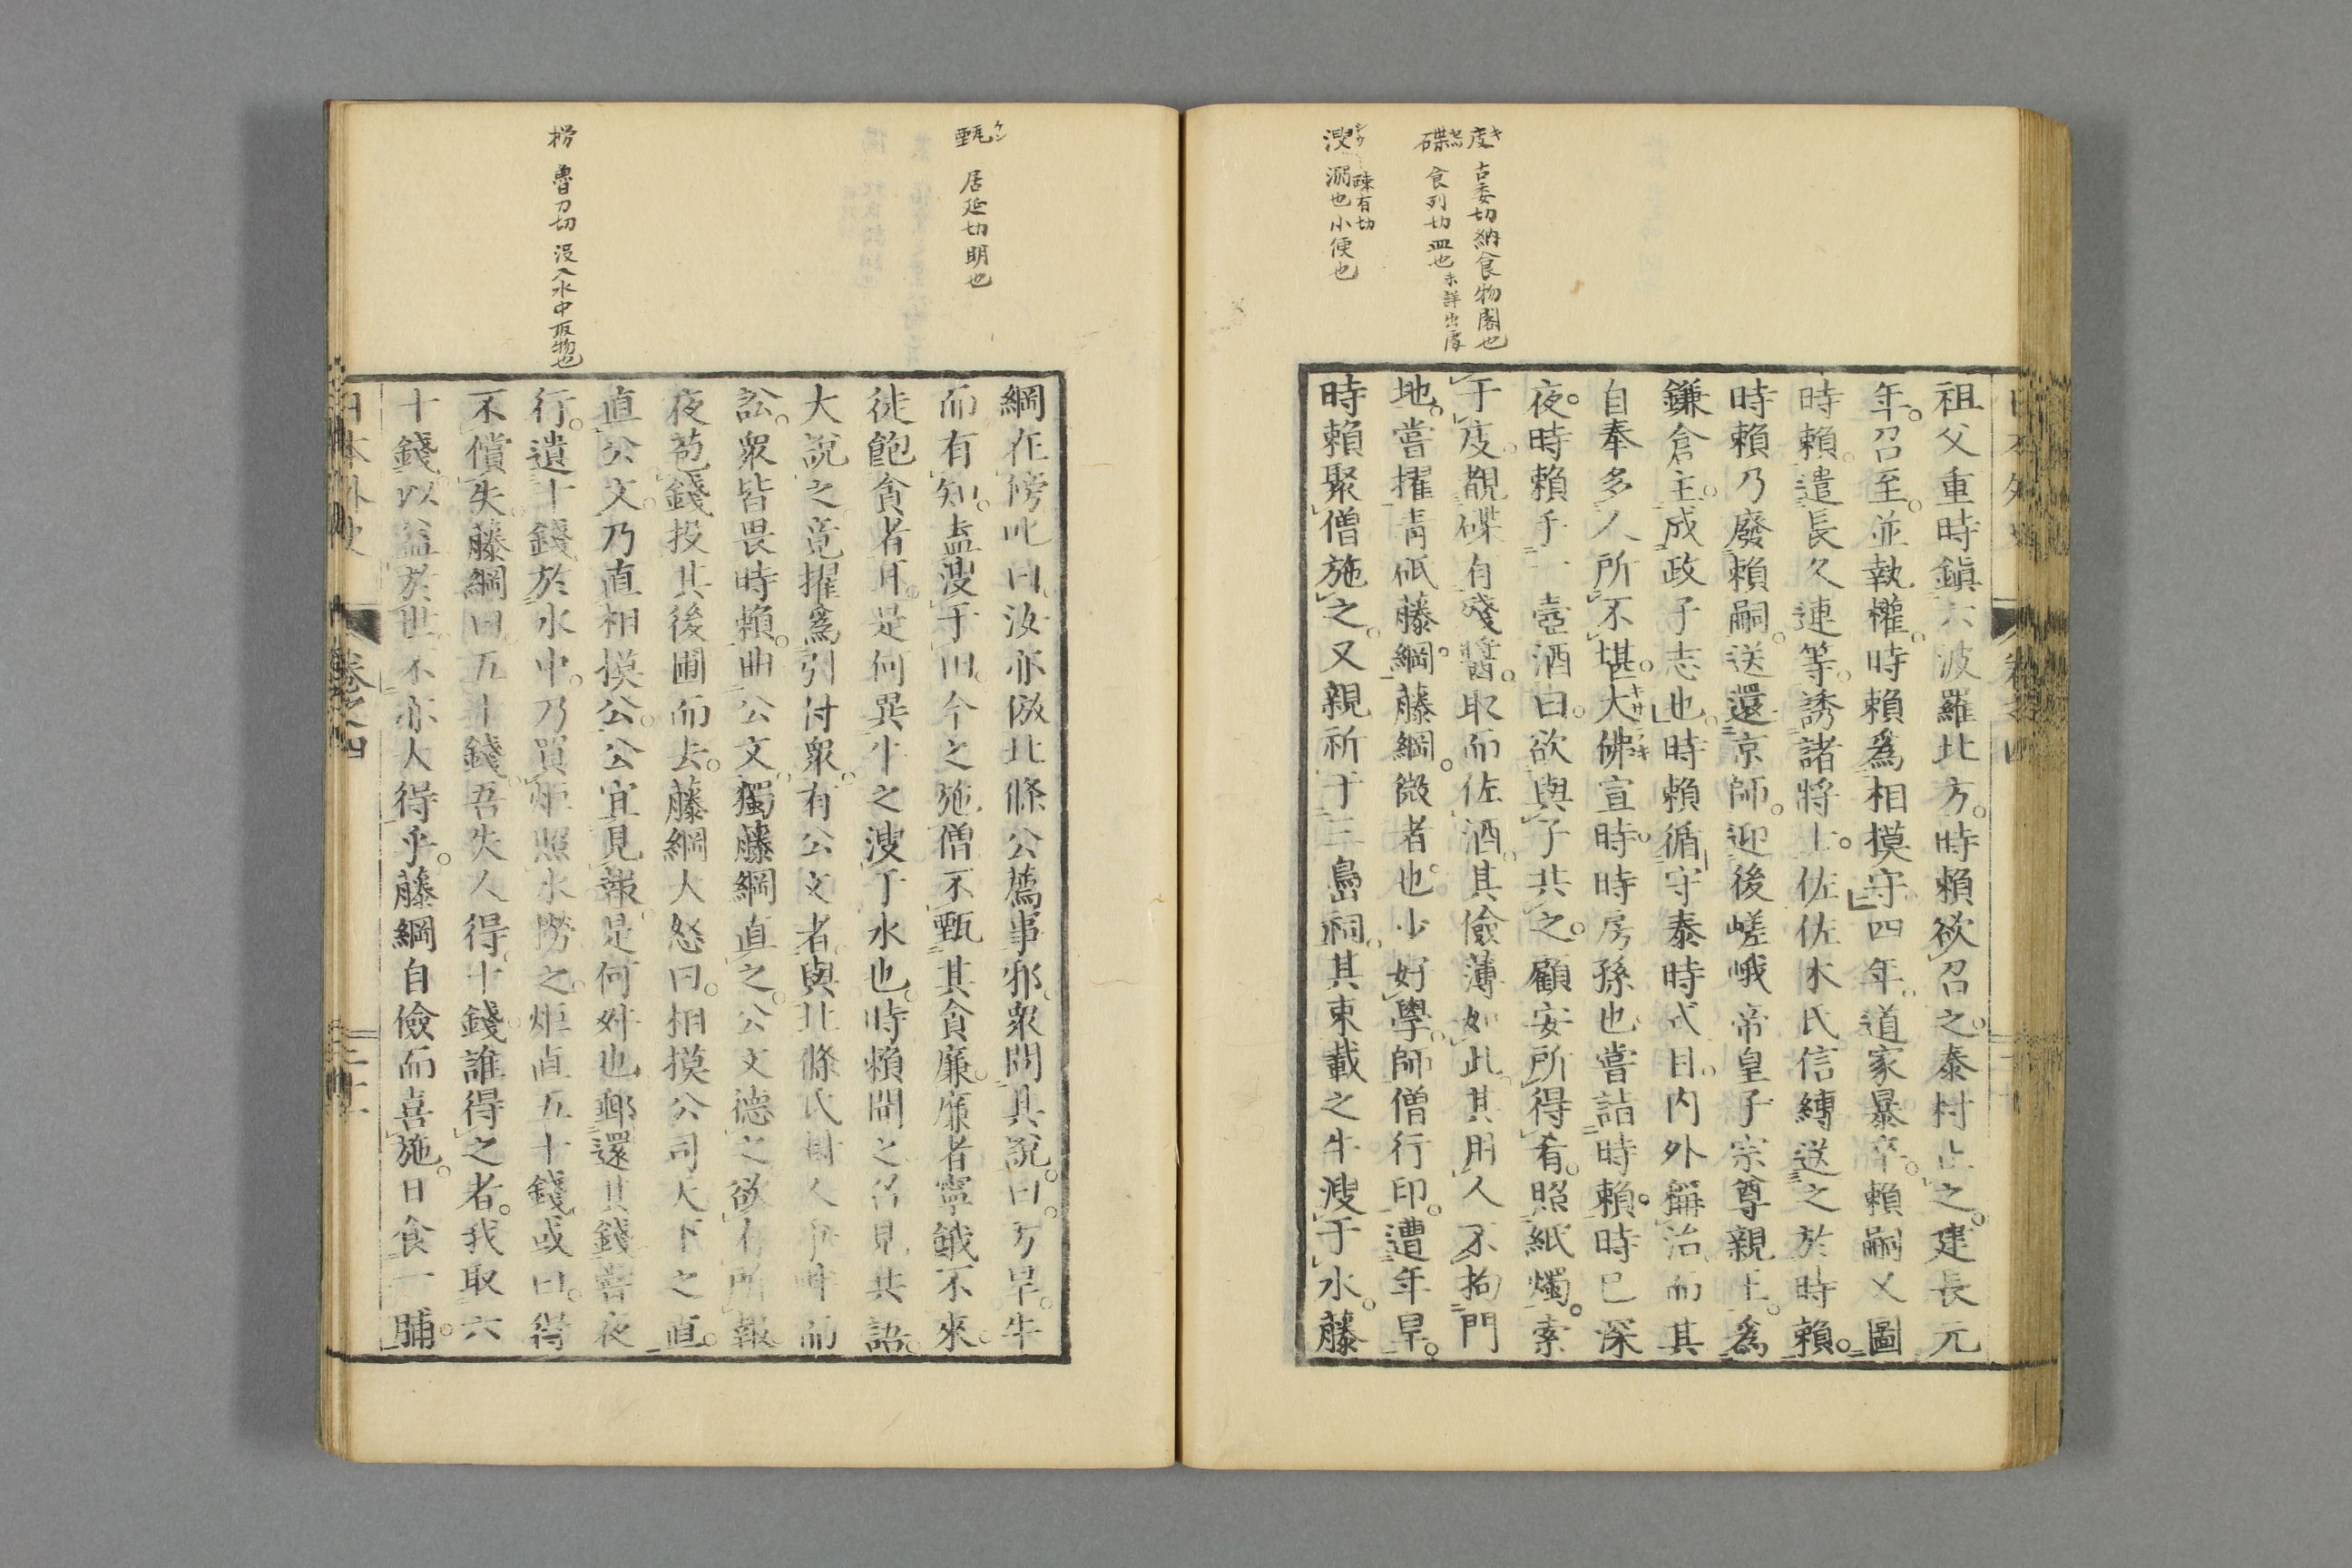 庋 古委切納食物閣也
碟 食列切皿也 未詳出處
溲 疎有切
溺也小便也
祖父重時鎭六波羅北方。時賴欲召之。泰村止之。建長元
年。召至。並執權。時賴爲相摸守四年。道家暴卒。賴嗣又圖
時賴。遣長久連等。誘諸將士。佐佐木氏信縛送之於時賴。
時賴乃廢賴嗣。送還京師。迎後嵯峨帝皇子宗尊親王。爲
鎌倉主。成政子志也。時賴循守泰時式目。内外稱治。而其
自奉多人所不堪。大佛宣時。時房孫也。嘗詣時賴。時已深
夜。時賴手一壺酒曰。欲與子共之。顧安所得肴。照紙燭。索
于庋。覩碟有殘醬。取而佐酒。其儉薄如此。其用人不拘門
地。嘗擢靑砥藤綱。藤綱。微者也。少好學。師僧行印。遭年旱。
時賴聚僧施之。又親祈于三島祠。其束載之牛溲于水。藤
甄 居延切明也
撈 魯刀切 没入水中取物也
綱在傍叱曰。汝亦倣北條公薦事邪。衆問其說。曰。方旱。牛
而有知。盍溲于田。今之施僧。不甄其貪廉。廉者寧餓不來。
徒飽貪者耳。是何異牛之溲于水也。時賴聞之。召見共語。
大說之。竟擢爲引付衆。有公文者。與北條氏封人爭畔而
訟。衆皆畏時賴。曲公文。獨藤綱直之。公文德之。欲有所報
夜苞錢投其後圃而去。藤綱大怒曰。相摸公司天下之直。
直公文。乃直相摸公。公宜見報。是何舛也。郵還其錢。嘗夜
行。遺十錢於水中。乃買炬照水撈之。炬直五十錢。或曰。得
不償失。藤綱曰。五十錢。吾失人得。十錢誰得之者。我取六
十錢。以益於世。不亦大得乎。藤綱自儉而喜施。日食一脯。
日本外史 卷之四 二十一